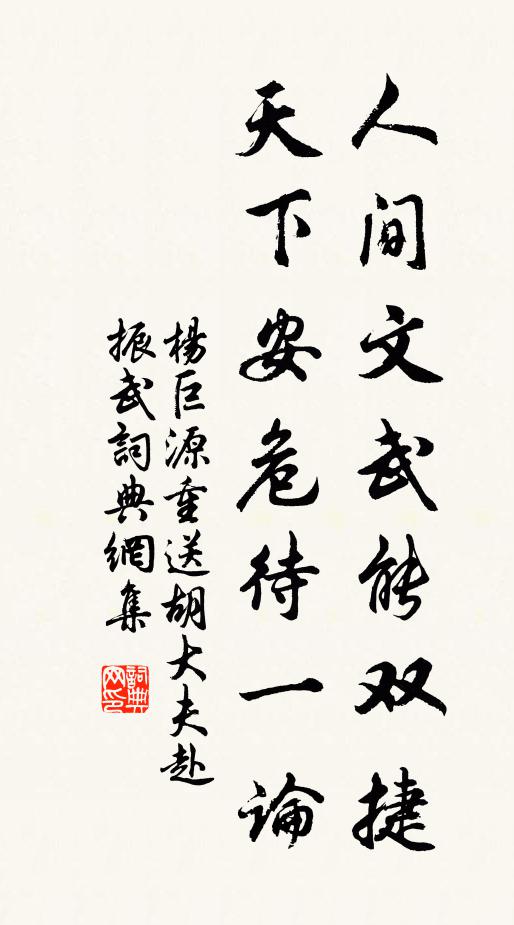 人间文武能双捷
天下安危待一论
楊巨源重送胡大夫赴
振武詞典網集
詞典
网印